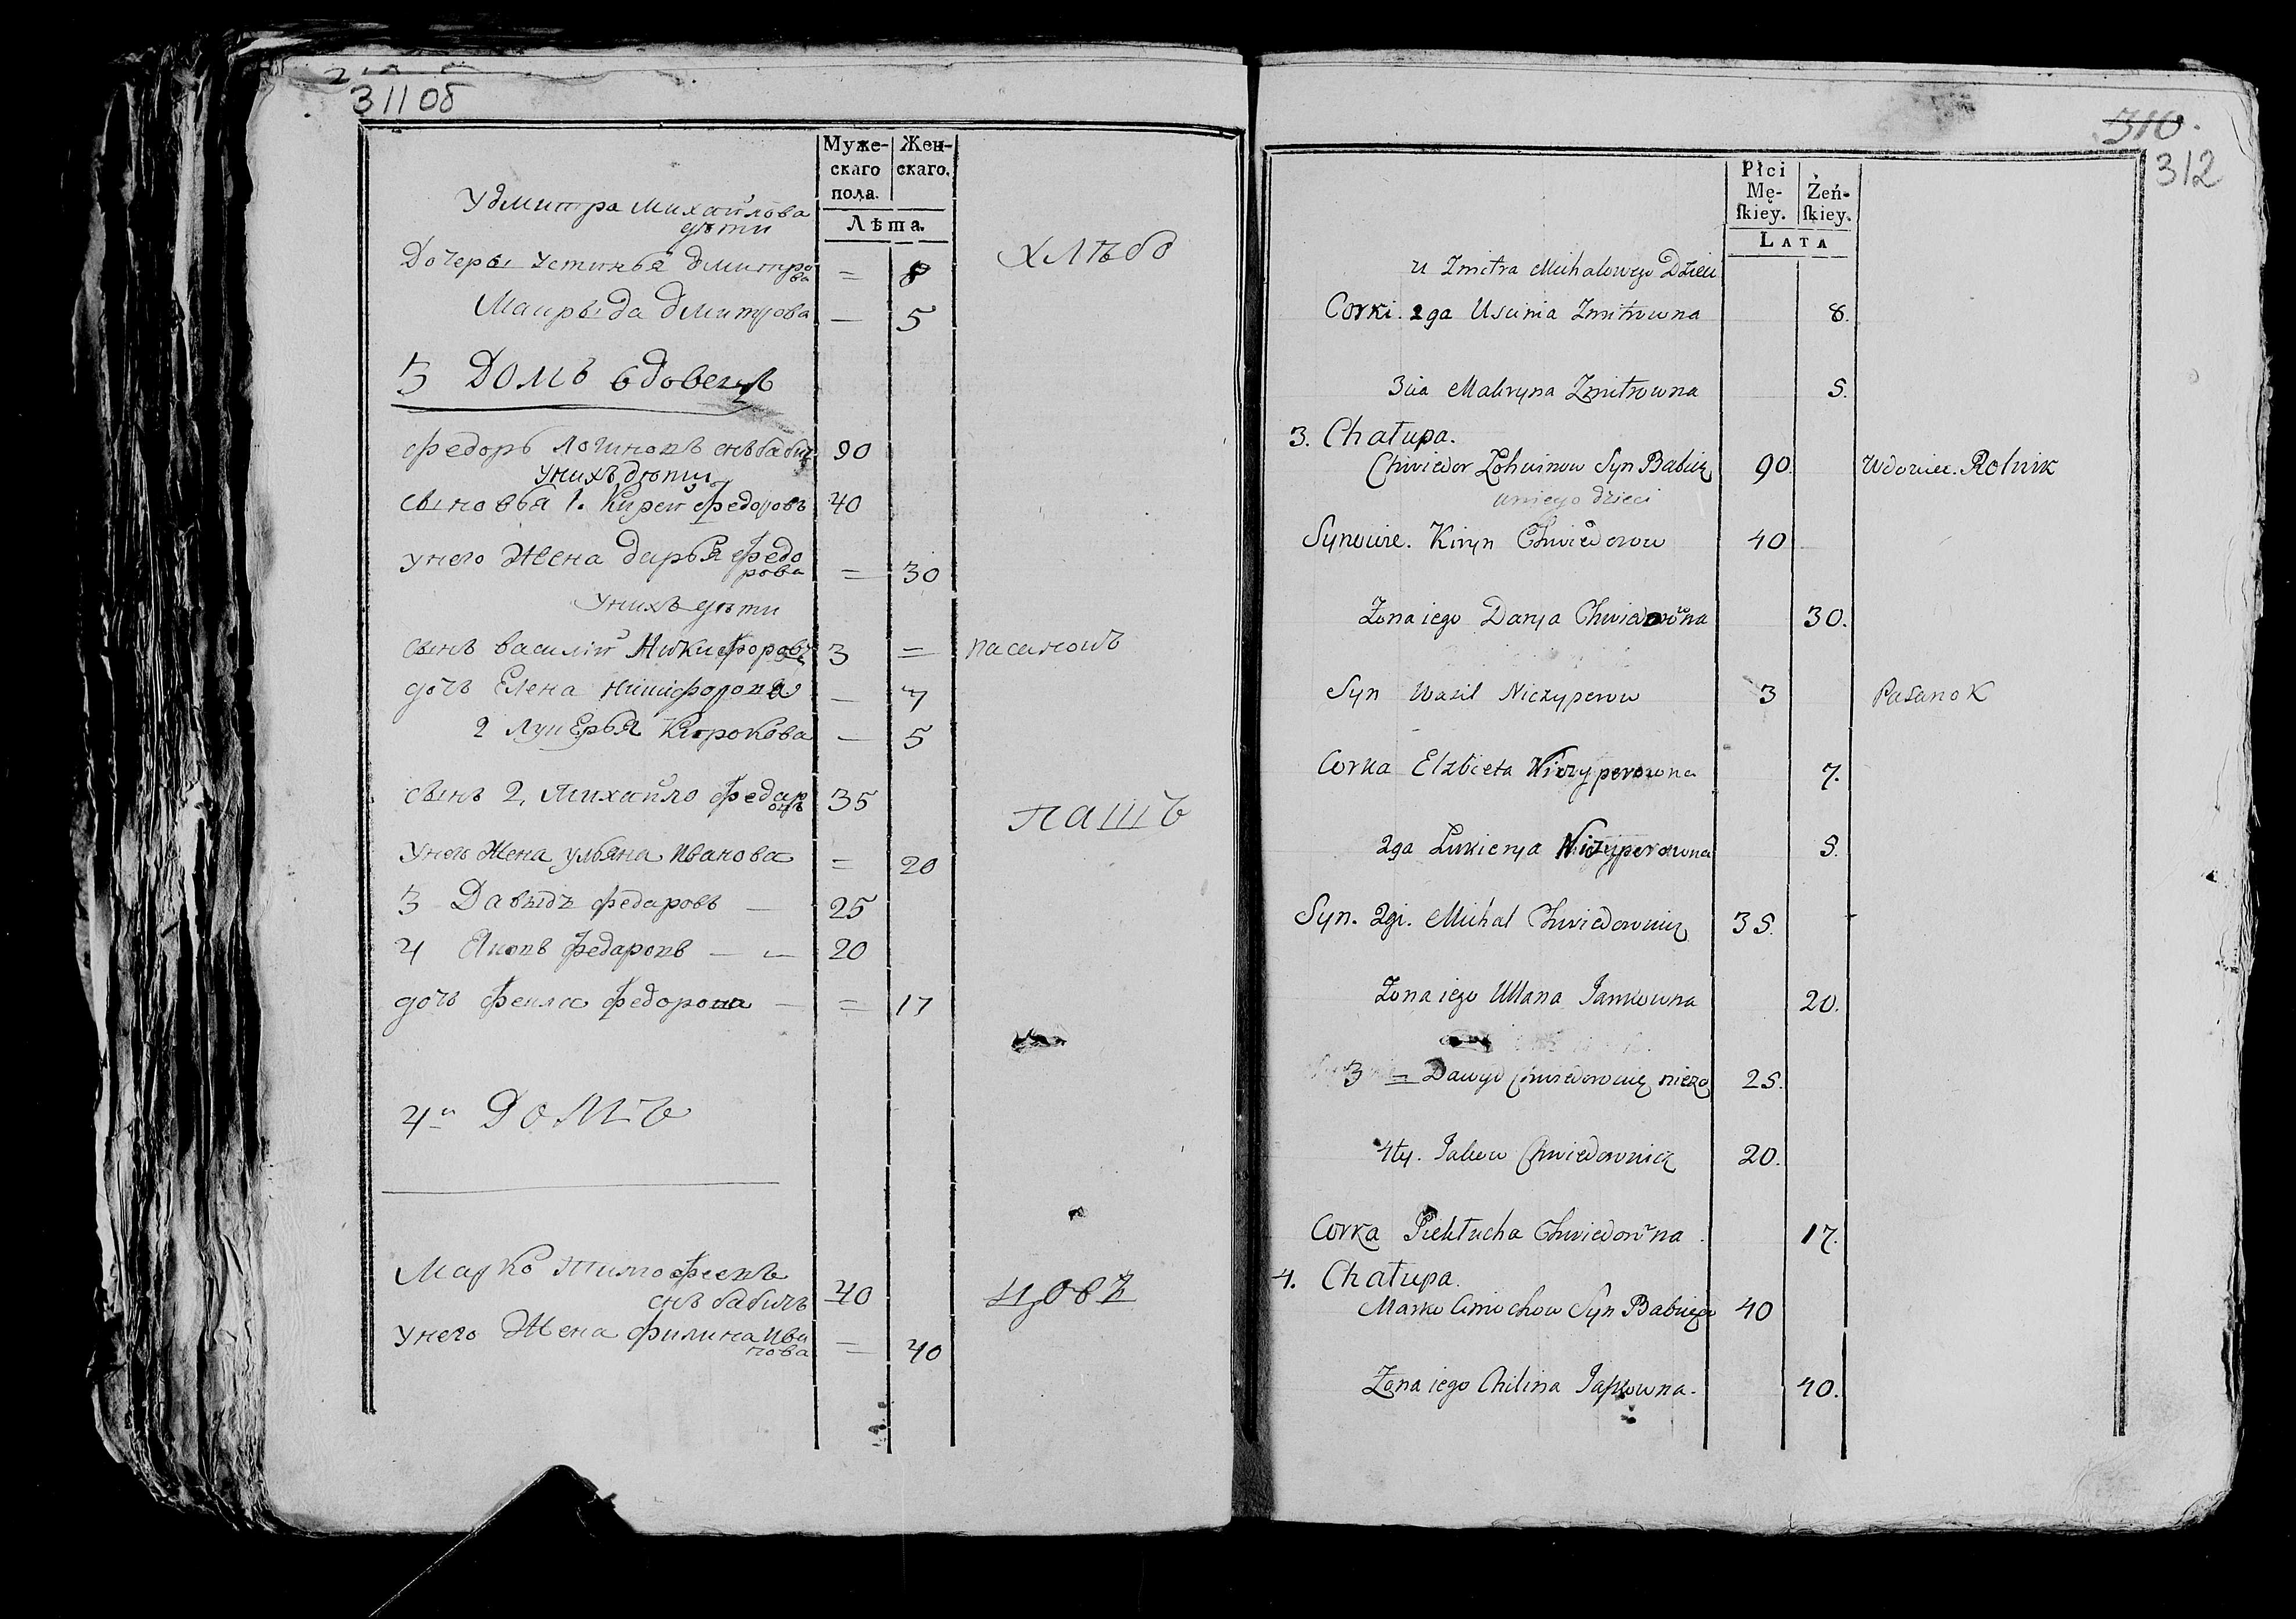 311 об
Муже-
скаго
пола.
Жен-
скаго.
Лѣта.
У дмитра михайлова
дѣти
хлѣбо
дочеры устинья дмитро
ва = 8
Макрыда дмитрова — 5
3 Домъ вдовецъ
федоръ логиновъ снъ бабич 90
у нихъ дѣти
сыновья 1. Кирей федоровъ 40
у него жена дарья федо
рова = 30
у нихъ дѣти
сынъ василий Никифоровъ 3 = пасанокъ
дочъ Елена никифорова — 7
2 лукерья — 5
сынъ 2, михайло федар
овъ 35
пашъ
у него жена ульяна иванова = 20
3 Давыдъ федаровъ — 25
4 Яковъ федаровъ — — 20
дочъ федорова — = 17
4й Домъ
Марко тимофеевъ
снъ бабичъ 40
у него жена филина ива
нова = 40
310.
312
Płci
Mę-
skiey.
Żeń-
skiey.
LATA
u Zmitra Michałowego Dzieci
Corki. 2ga Uscinia Zmitrowna 8.
3cia Makryna Zmitrowna 5.
3. Chałupa.
Chwiedor Łohwinow Syn Babicz 90. Wdowiec. Rolnik
u niego dzieci
Synowie. Kiryn Chwiedorow 40
Żona iego Darya Chwiedorowna 30.
Syn Wasil Niczyperow 3 Pasanok
Corka Elzbieta Niczyperowna 7.
2ga Łukierya Niczyperowna 5.
Syn. 2gi. Michał Chwiedorowicz 35.
Żona iego Ullana Jankowna 20.
3 = Dawyd Chwiedorowicz 25.
4ty. Jakow Chwiedorowicz 20.
Corka Chwiedorowna 17.
4. Chałupa.
Marko Syn Babicza 40
Żona iego Chilina 40.